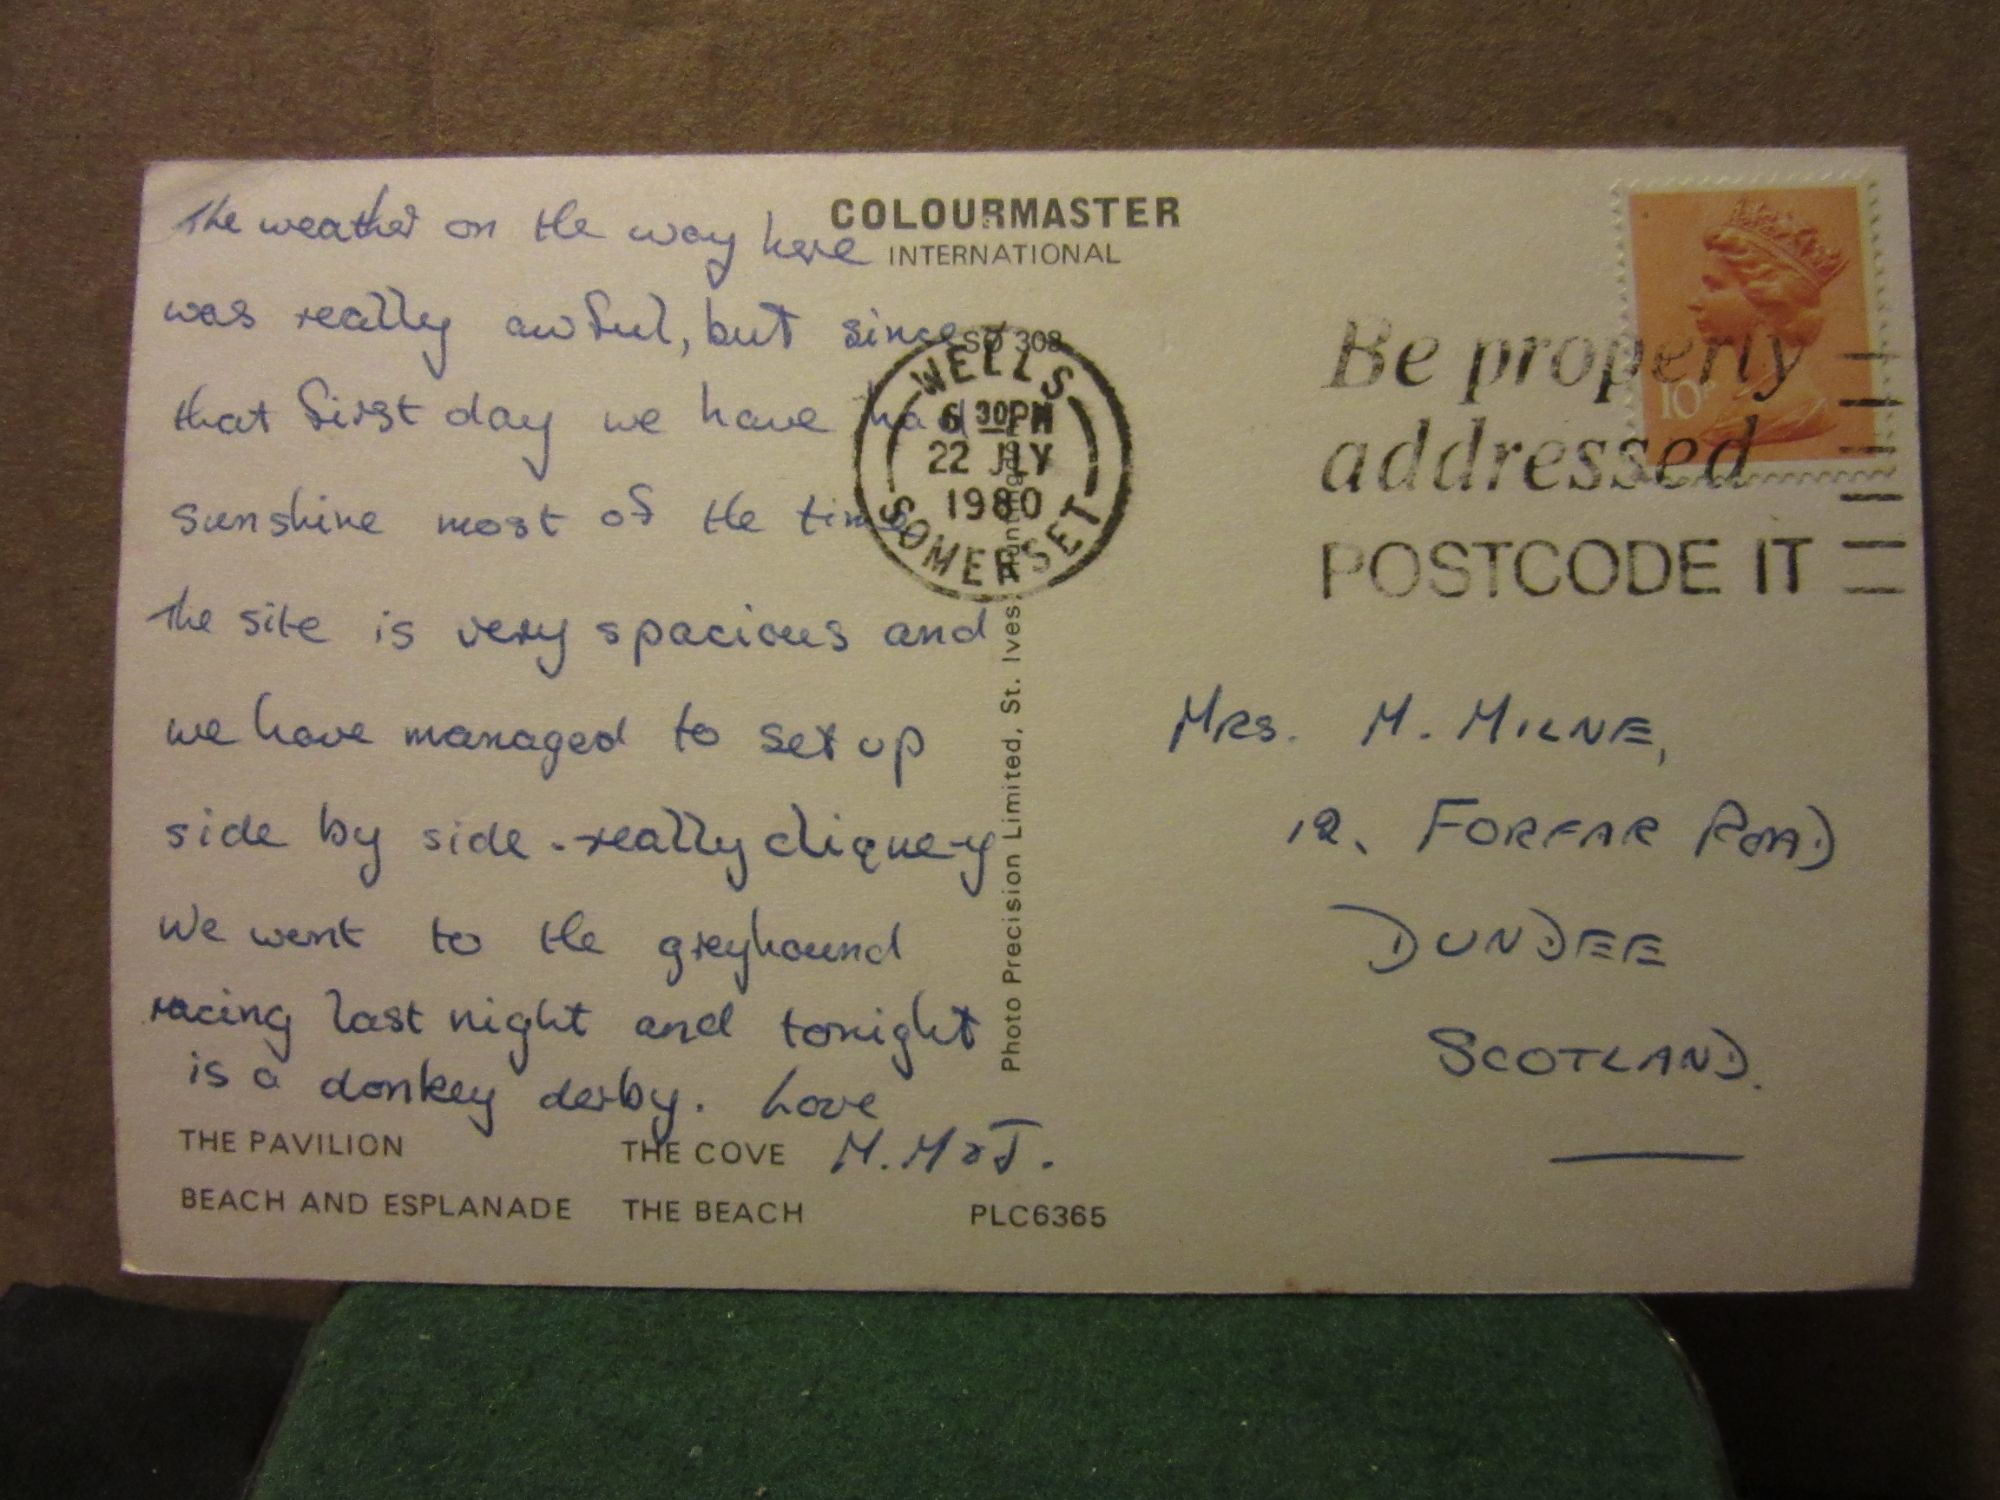 The weather on the way here
was really awful, but since
that first day we have had
sunshine most of the time
The site is very spacious and
we have managed to set up
side by side - really clique-y
We went to the greyhound
racing last night and tonight
is a donkey derby. Love
M. M & J.
THE PAVILION THE COVE
BEACH AND ESPLANADE THE BEACH PLC6365
COLOURMASTER
INTERNATIONAL
SO 308
WELLS
6 30 PM
22 JLY
1980
SOMERSET
Photo Precision Limited, St. Ives,
10
Be properly
addressed
POSTCODE IT
MRS. M. MILNE,
12, FORFAR ROAD
DUNDEE
SCOTLAND.